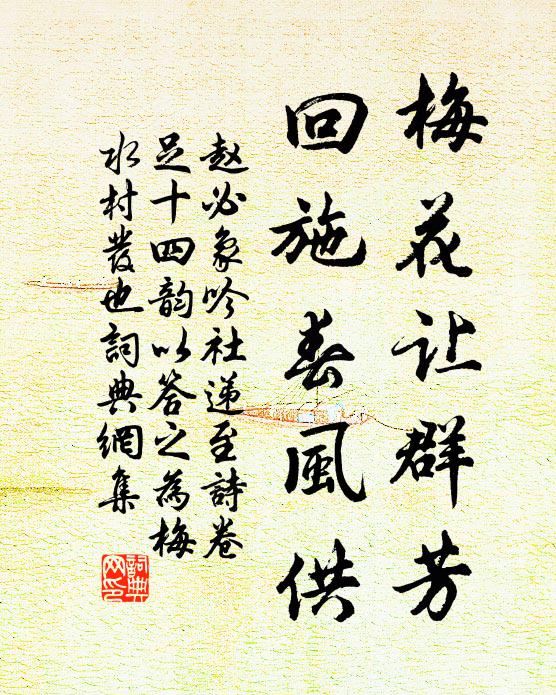 梅花让群芳
回施春風供
赵必象吟社递至詩卷
足十四韵以答之為梅
水村發也詞典網集
詞典
网印